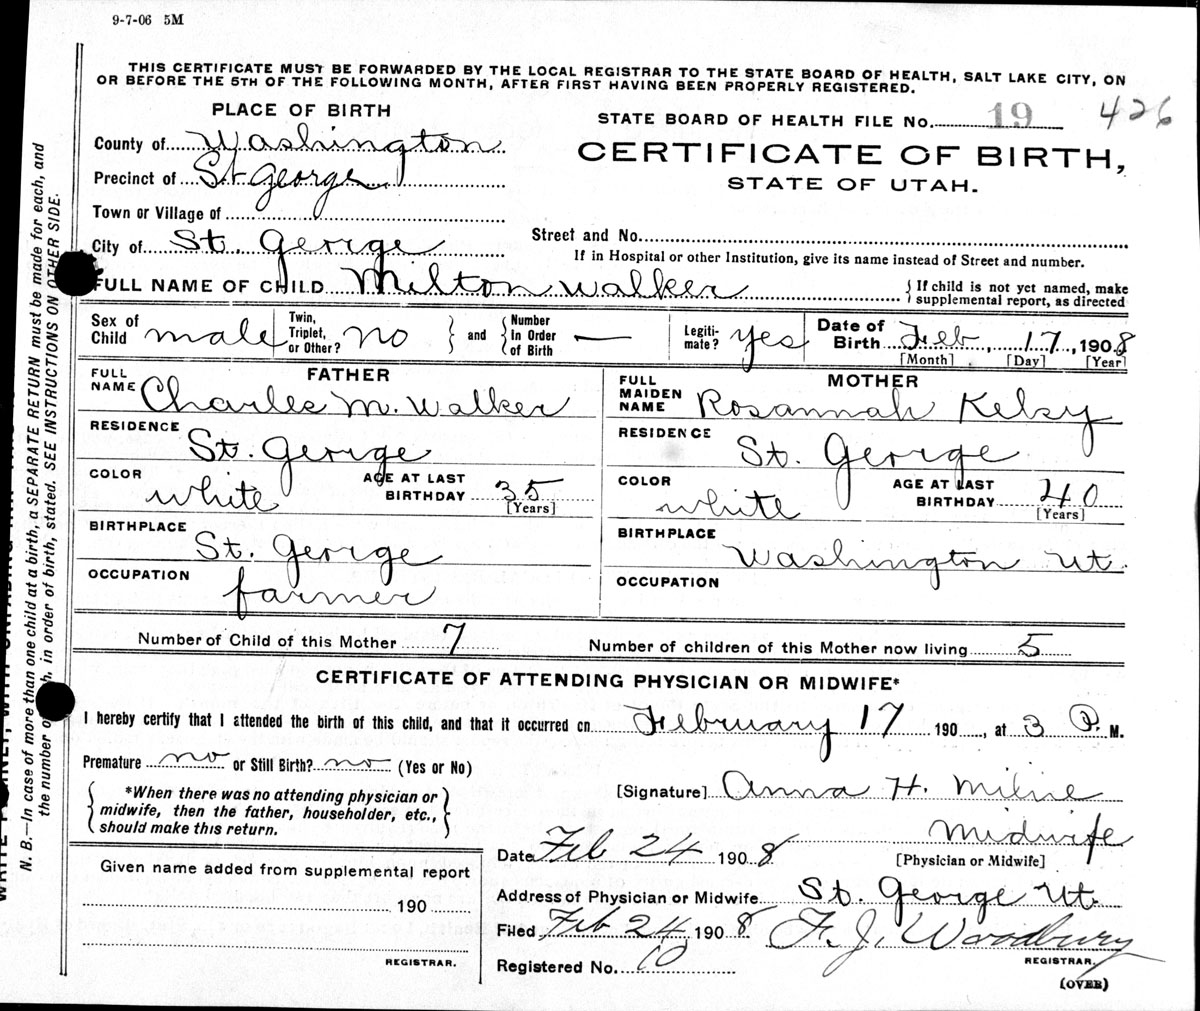 9-7-06 5M
THIS CERTIFICATE MUST BE FORWARDED BY THE LOCAL REGISTRAR TO THE STATE BOARD OF HEALTH, SALT LAKE CITY, ON
OR BEFORE THE 5TH OF THE FOLLOWING MONTH, AFTER FIRST HAVING BEEN PROPERLY REGISTERED.
PLACE OF BIRTH
STATE BOARD OF HEALTH FILE No. 19 426
County of Washington
CERTIFICATE OF BIRTH,
Precinct of St George
STATE OF UTAH.
Town or Village of
City of St. George
Street and No.
If in Hospital or other Institution, give its name instead of Street and number.
FULL NAME OF CHILD Milton Walker
{If child is not yet named, make
supplemental report, as directed
Sex of Child male
Twin, Triplet, or Other? no
and
Number in Order of Birth —
Legiti-mate? yes
Date of Birth Feb, 17, 1908
[Month] [Day] [Year]
FATHER
FULL NAME Charles M. Walker
RESIDENCE St. George
COLOR white
AGE AT LAST BIRTHDAY 35
[Years]
BIRTHPLACE St. George
OCCUPATION farmer
MOTHER
FULL MAIDEN NAME Rosannah Kelsy
RESIDENCE St. George
COLOR white
AGE AT LAST BIRTHDAY 40
[Years]
BIRTHPLACE Washington Ut.
OCCUPATION
Number of Child of this Mother 7
Number of children of this Mother now living 5
CERTIFICATE OF ATTENDING PHYSICIAN OR MIDWIFE*
I hereby certify that I attended the birth of this child, and that it occurred on February 17 190 , at 3 P. M.
Premature no or Still Birth? no (Yes or No)
*When there was no attending physician or
midwife, then the father, householder, etc.,
should make this return.
[Signature] Anna H. Milne
Midwife
[Physician or Midwife]
Date Feb 24 1908
Address of Physician or Midwife St. George Ut.
Filed Feb 24, 1908 F. J. Woodbury
REGISTRAR.
Registered No. 10
(OVER)
Given name added from supplemental report
190
REGISTRAR.
N. B.—In case of more than one child at a birth, a SEPARATE RETURN must be made for each, and
the number of each, in order of birth, stated. SEE INSTRUCTIONS ON OTHER SIDE.